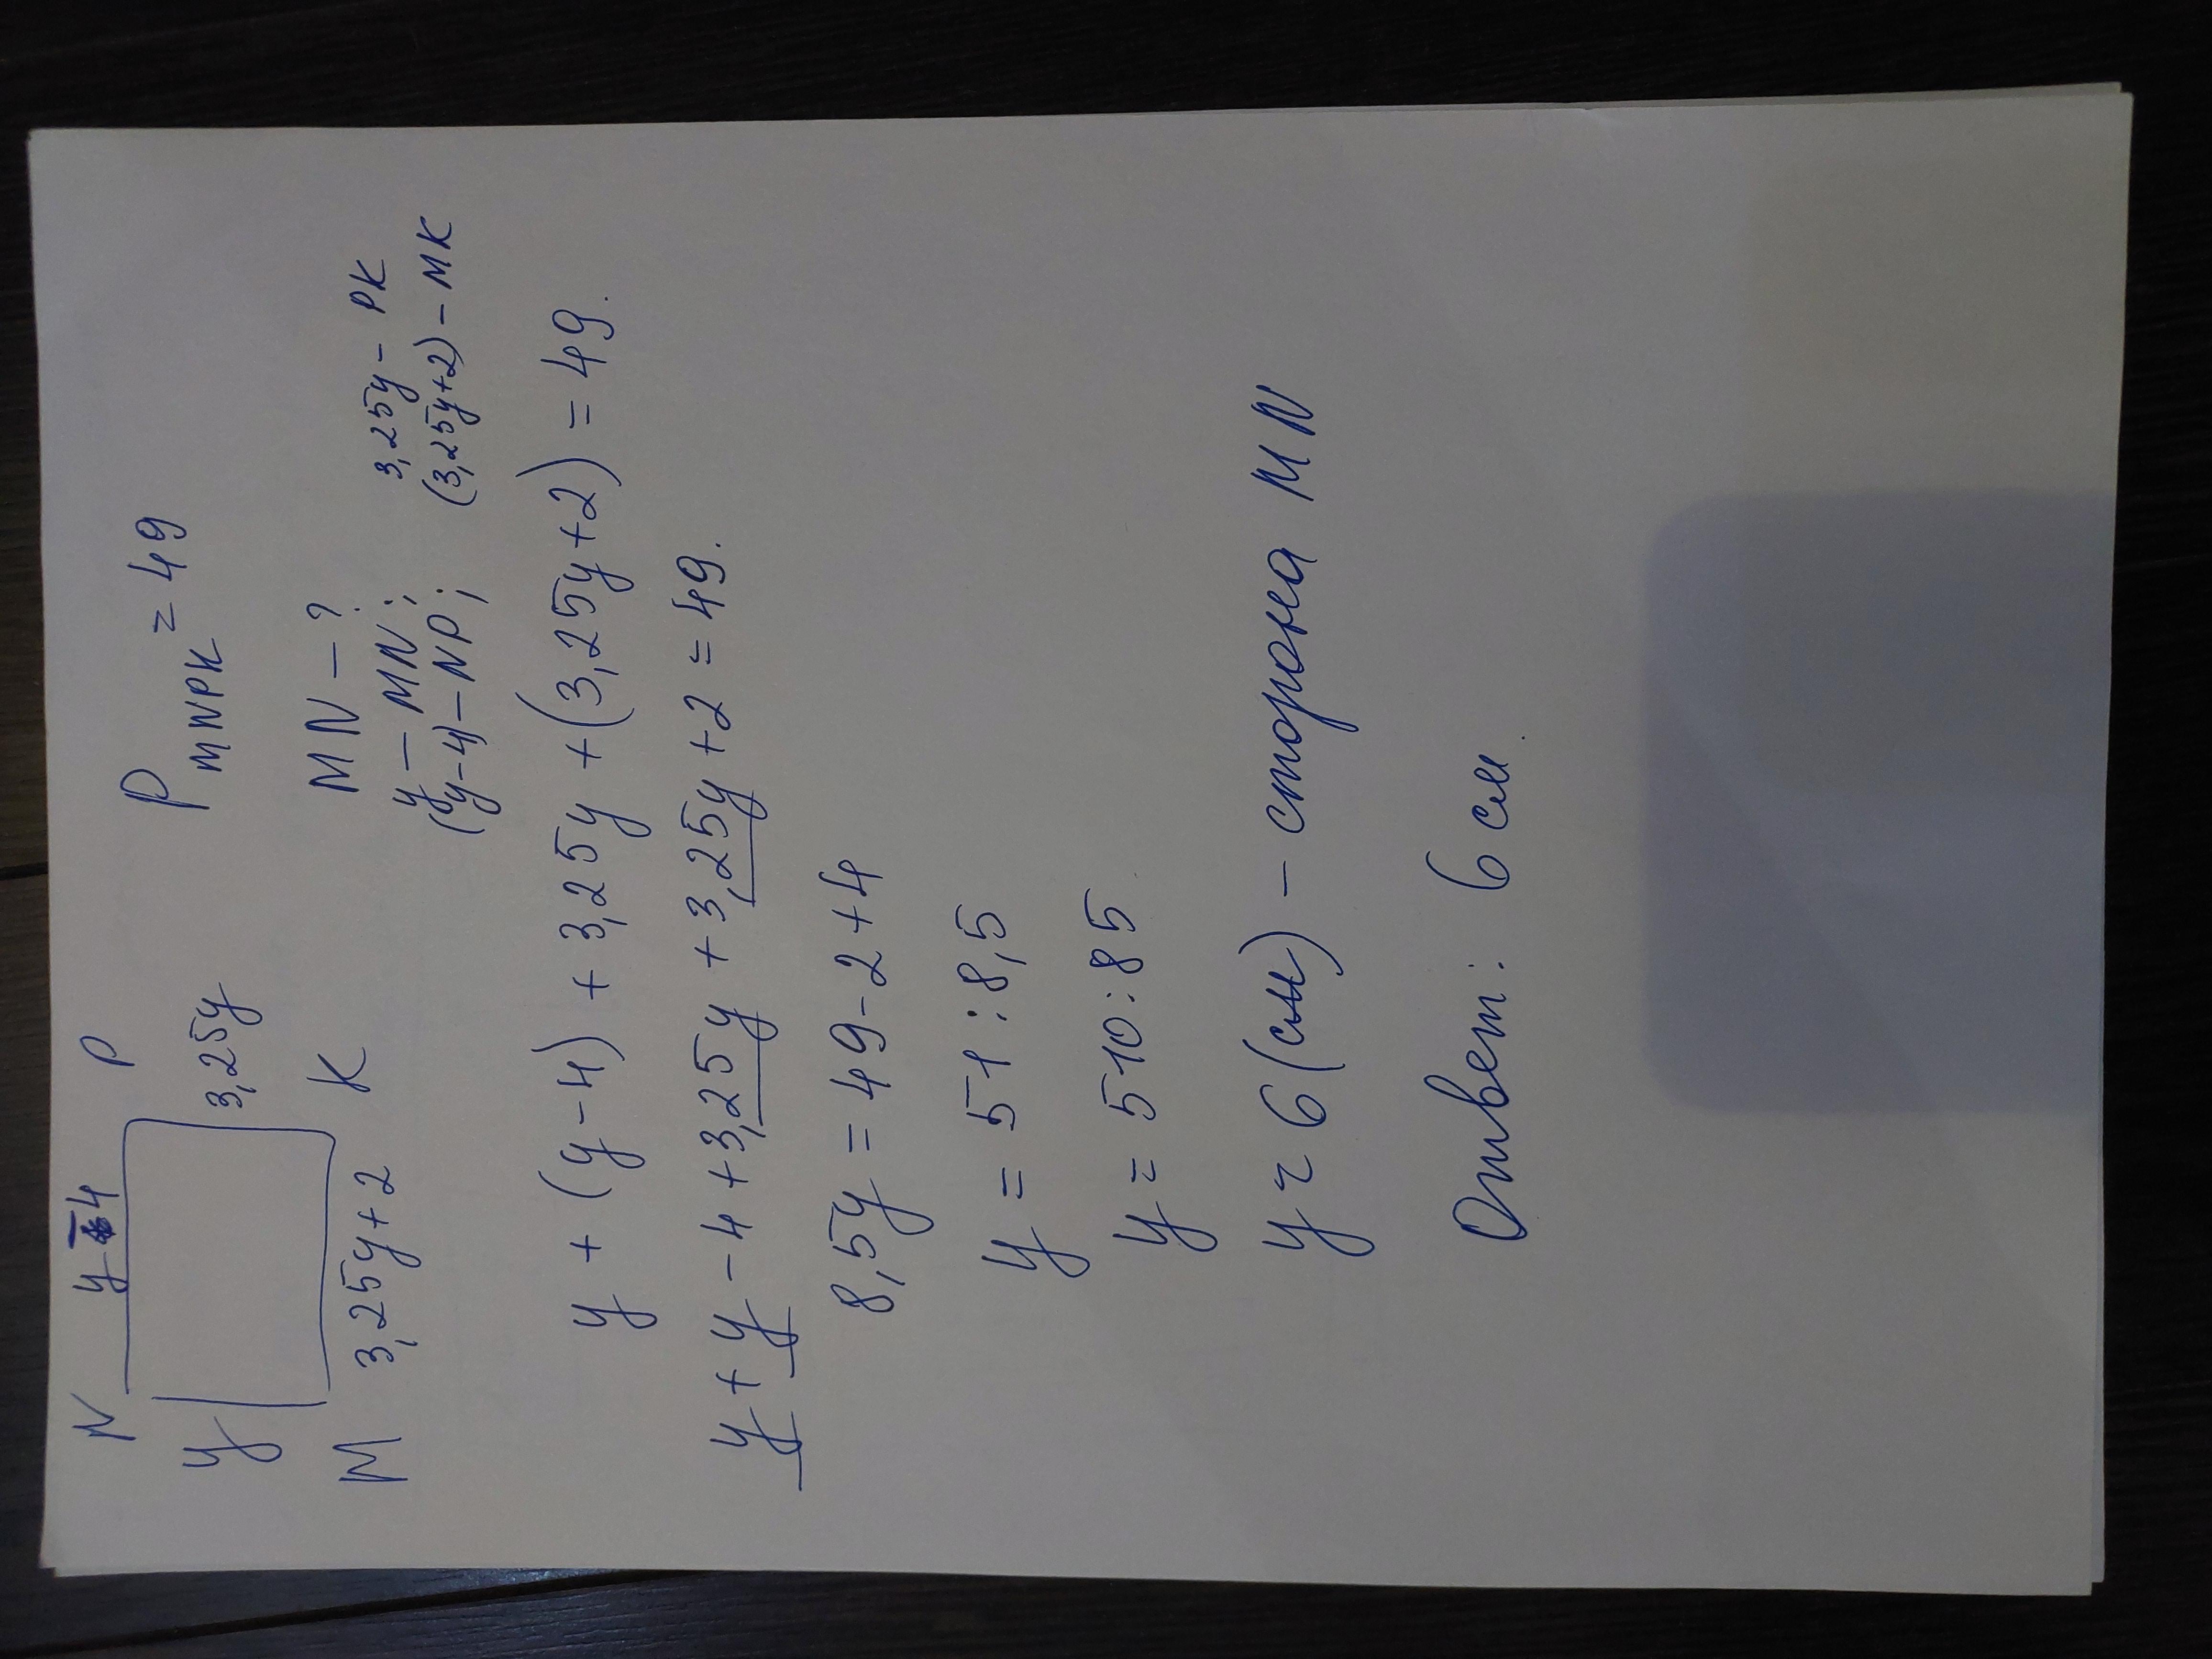 N y-4 P
y 3,25y
M 3,25y+2 K
P MNPK = 49
MN - ?
y - MN; 3,25y - PK
(y-4) - NP; (3,25y+2) - MK
y + (y-4) + 3,25y + (3,25y+2) = 49.
y + y - 4 + 3,25y + 3,25y + 2 = 49.
8,5y = 49-2+4
y = 51 : 8,5
y = 510 : 85
y = 6 (см) - сторона MN
Ответ: 6 см.